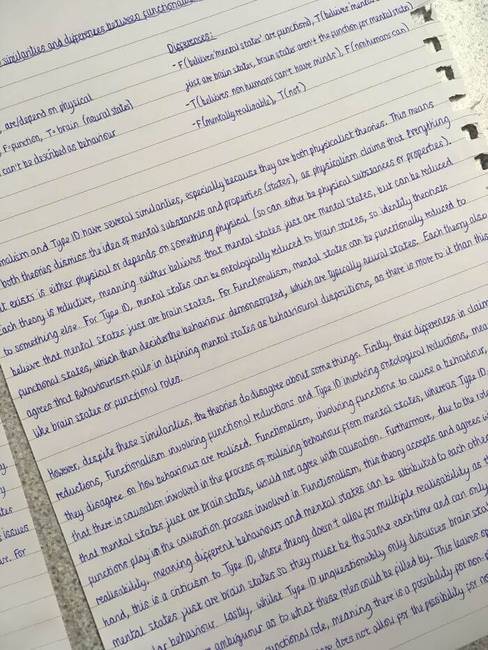 similarities and differences between functionalis
Differences:
- F (believes 'mental states' are functions), T (believes 'mental
just are brain states, brain states aren't the function/or mental state)
- T (believes non humans can't have minds), F (non humans can)
- F (mentally realisable), T (not)
are/depend on physical
F = function, T = brain (neural state)
can't be described as behaviour
nalism and Type ID have several similarities, especially because they are both physicalist theories. This means
both theories dismiss the idea of mental substances and properties (states), as physicalism claims that everything
t exists is either physical or depends on something physical (so can either be physical substances or properties).
Each theory is reductive, meaning neither believes that mental states just are mental states, but can be reduced
to something else. For Type ID, mental states can be ontologically reduced to brain states, so identity theorists
believe that mental states just are brain states. For Functionalism, mental states can be functionally reduced to
functional states, which then decides the behaviour demonstrated, which are typically neural states. Each theory also
agrees that Behaviourism fails in defining mental states as behavioural dispositions, as there is more to it than this
like brain states or functional roles.
However, despite these similarities, the theories do disagree about some things. Firstly, their differences in claim
reductions, Functionalism involving functional reductions and Type ID involving ontological reductions, mea
they disagree on how behaviours are realised. Functionalism, involving functions to cause a behaviour,
that there is causation involved in the process of realising behaviour from mental states, whereas Type ID
that mental states just are brain states, would not agree with causation. Furthermore, due to the role
functions play in the causation process involved in Functionalism, this theory accepts and agrees wi
realisability, meaning different behaviours and mental states can be attributed to each other
hand, this is a criticism to Type ID, where theory doesn't allow for multiple realisability as t
mental states just are brain states so they must be the same each time and can only
lar behaviour. Lastly, whilst Type ID unquestionably only discusses brain stat
ambiguous as to what these roles could be filled by. This leaves op
functional role, meaning there is a possibility for non
does not allow for the possibility for no
issues
ve. For